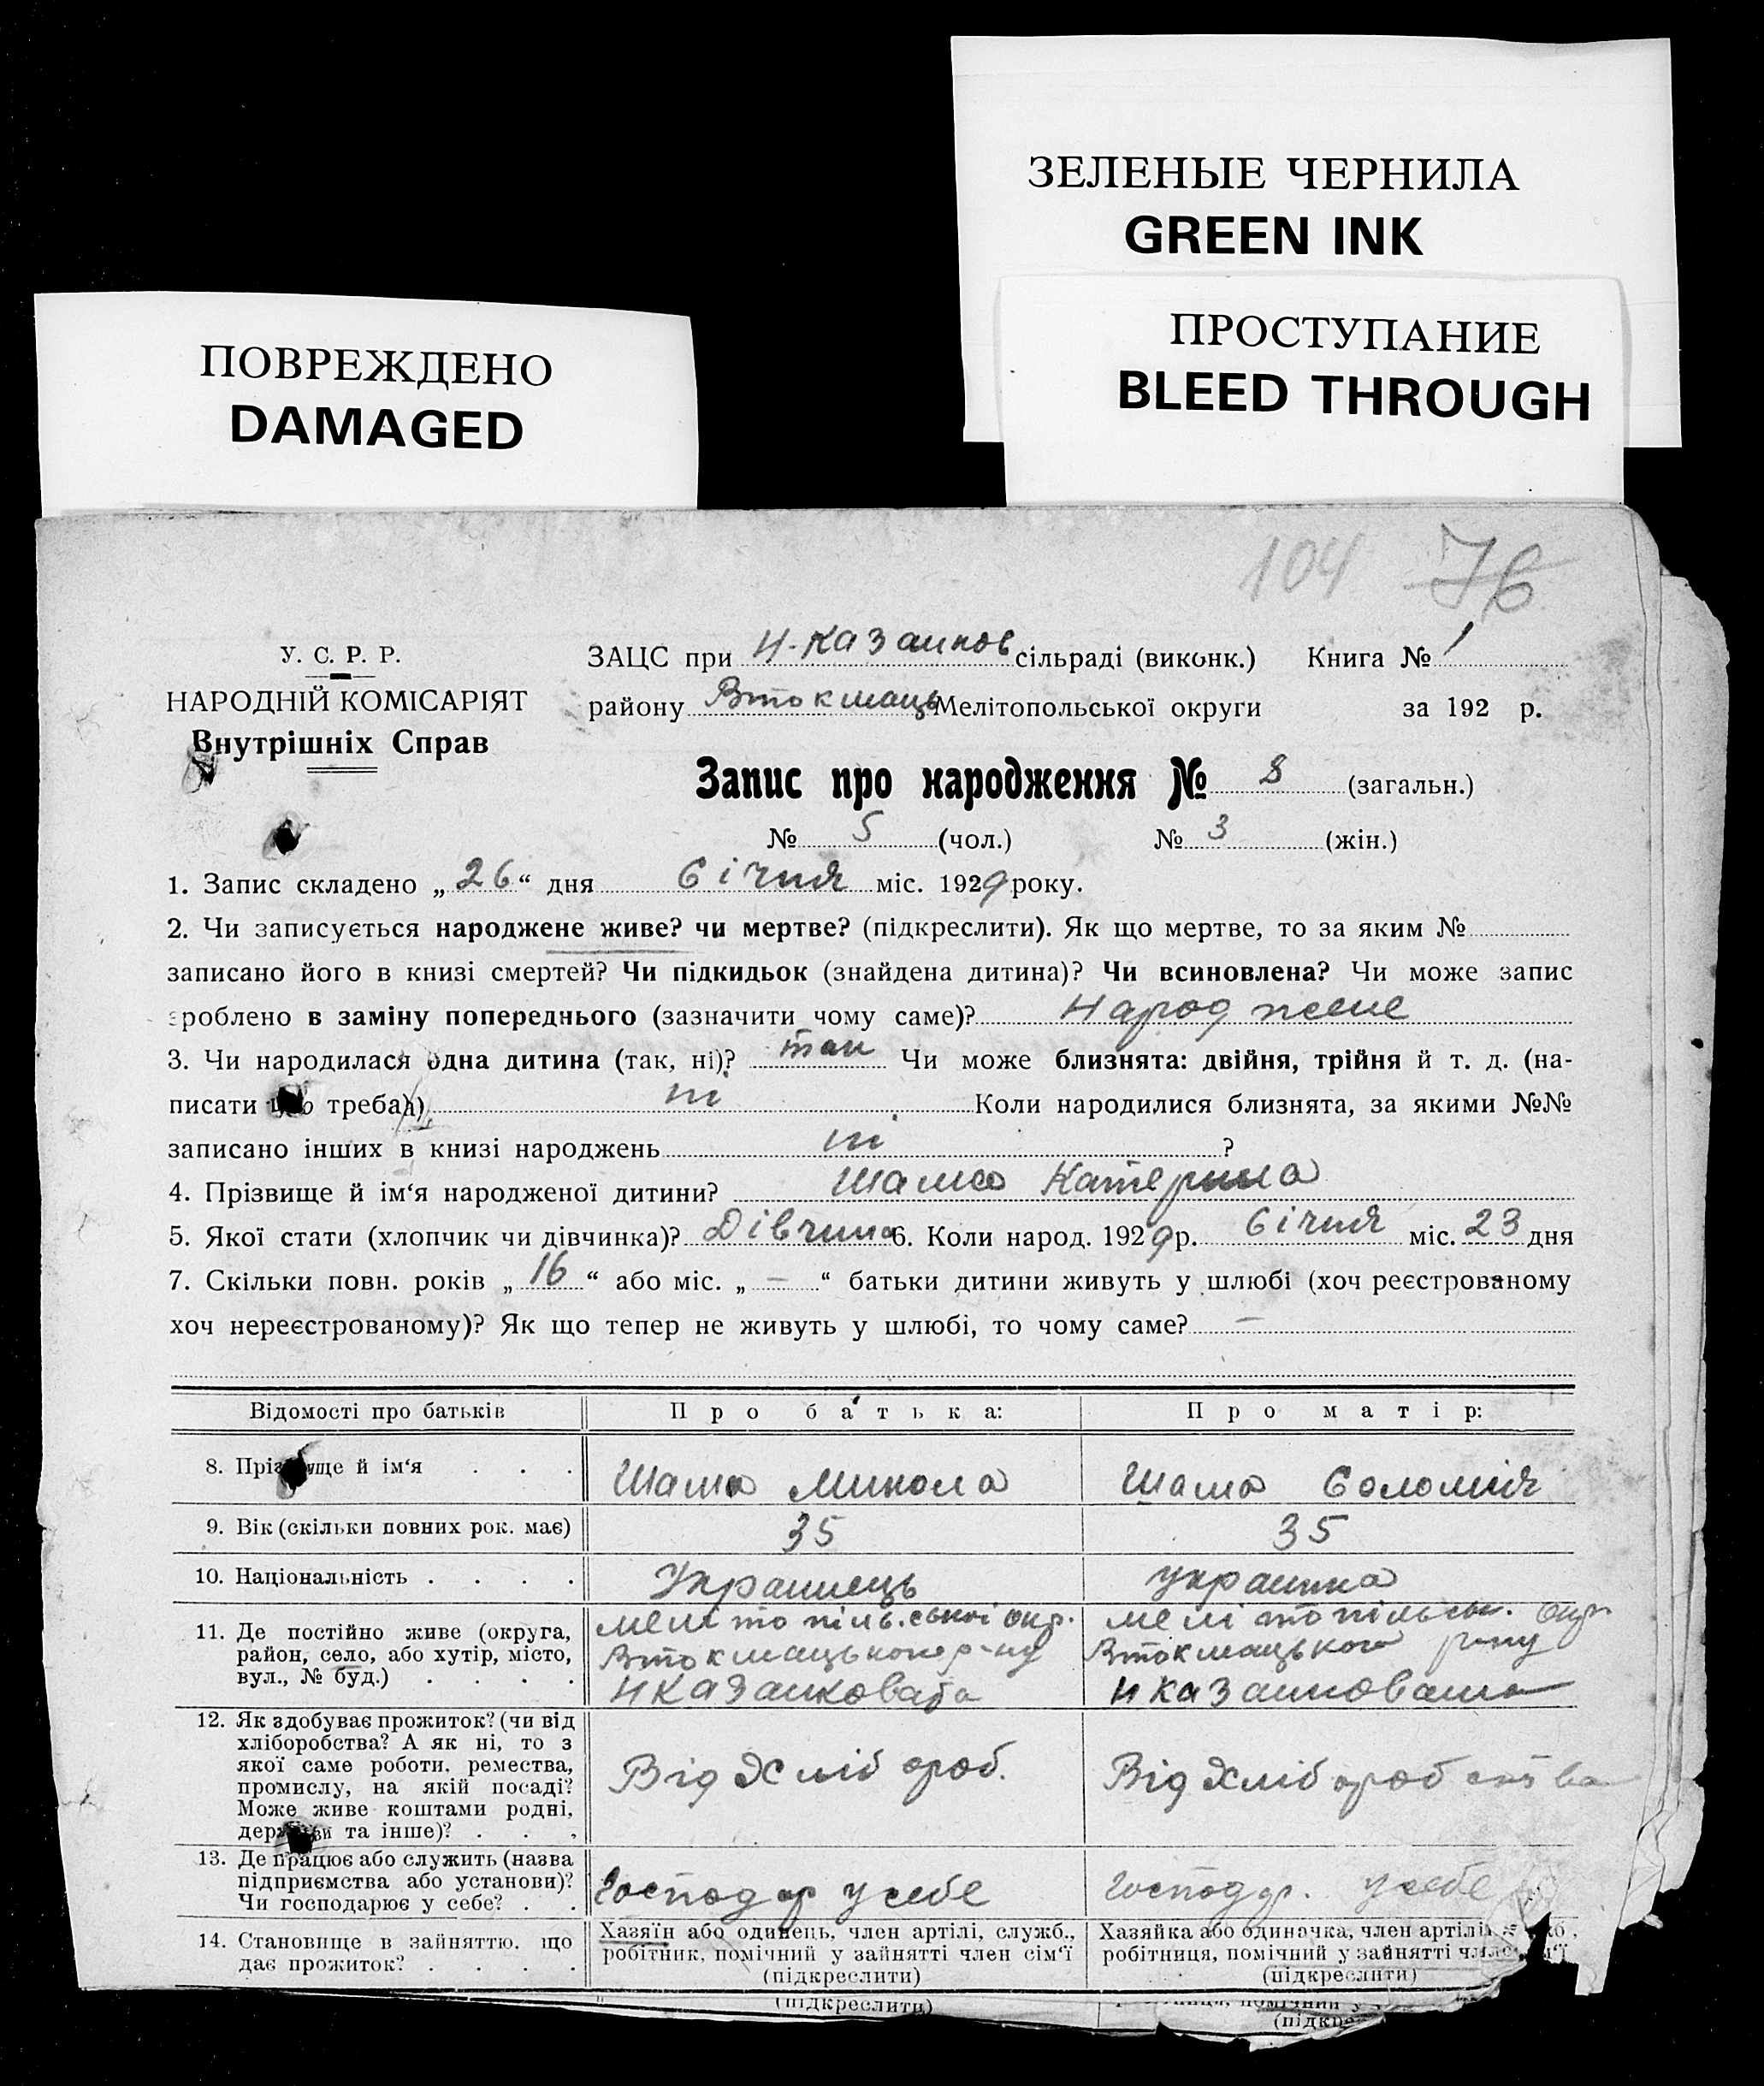 ЗЕЛЕНЫЕ ЧЕРНИЛА
GREEN INK
ПРОСТУПАНИЕ
BLEED THROUGH
ПОВРЕЖДЕНО
DAMAGED
104 76
У. С. Р. Р.
НАРОДНІЙ КОМІСАРІЯТ
Внутрішніх Справ
ЗАЦС при Н-Казанков сільраді (виконк.) Книга № 1
району Втокмаць Мелітопольської округи за 192 р.
Запис про народження № 8 (загальн.)
№ 5 (чол.) № 3 (жін.)
1. Запис складено „26“ дня Січня міс. 1929 року.
2. Чи записується народжене живе? чи мертве? (підкреслити). Як що мертве, то за яким №
записано його в книзі смертей? Чи підкидьок (знайдена дитина)? Чи всиновлена? Чи може запис
зроблено в заміну попереднього (зазначити чому саме)? Народжене
3. Чи народилася одна дитина (так, ні)? так Чи може близнята: двійня, трійня й т. д. (на-
писати що треба) ні Коли народилися близнята, за якими №№
записано інших в книзі народжень ні ?
4. Прізвище й ім‘я народженої дитини? Шамо Катерина
5. Якої стати (хлопчик чи дівчинка)? Дівчина 6. Коли народ. 1929 р. Січня міс. 23 дня
7. Скільки повн. років „16“ або міс. „—“ батьки дитини живуть у шлюбі (хоч реєстрованому
хоч нереєстрованому)? Як що тепер не живуть у шлюбі, то чому саме? —
Відомості про батьків Про батька: Про матір:
8. Прізвище й ім‘я . . . Шамо Микола Шамо Соломія
9. Вік (скільки повних рок. має) 35 35
10. Національність . . . . Украинець украинка
11. Де постійно живе (округа,
район, село, або хутір, місто,
вул., № буд.) . . . .
Мелітопільської окр.
Втокмацького р-ну
Н Казанковата
Мелітопільськ. Окр
Втокмацького р-ну
Н Казанковата
12. Як здобуває прожиток? (чи від
хліборобства? А як ні, то з
якої саме роботи, ремества,
промислу, на якій посаді?
Може живе коштами родні,
держави та інше)? . . .
Від Хлібороб.
Від Хліборобства
13. Де працює або служить (назва
підприємства або установи)?
Чи господарює у себе? . .
Господар у себе
Господар. у себе
14. Становище в зайняттю, що
дає прожиток? . . . .
Хазяїн або одинець, член артілі, служб.,
робітник, помічний у зайнятті член сім‘ї
(підкреслити)
Хазяйка або одиначка, член артілі,
робітниця, помічний у зайнятті член сім‘ї
(підкреслити)
(підкреслити)